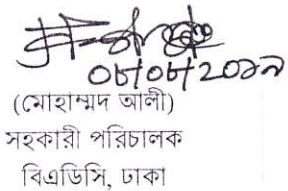 ০৮/০৮/২০১৯
(মোহাম্মদ আলী)
সহকারী পরিচালক
বিএডিসি, ঢাকা